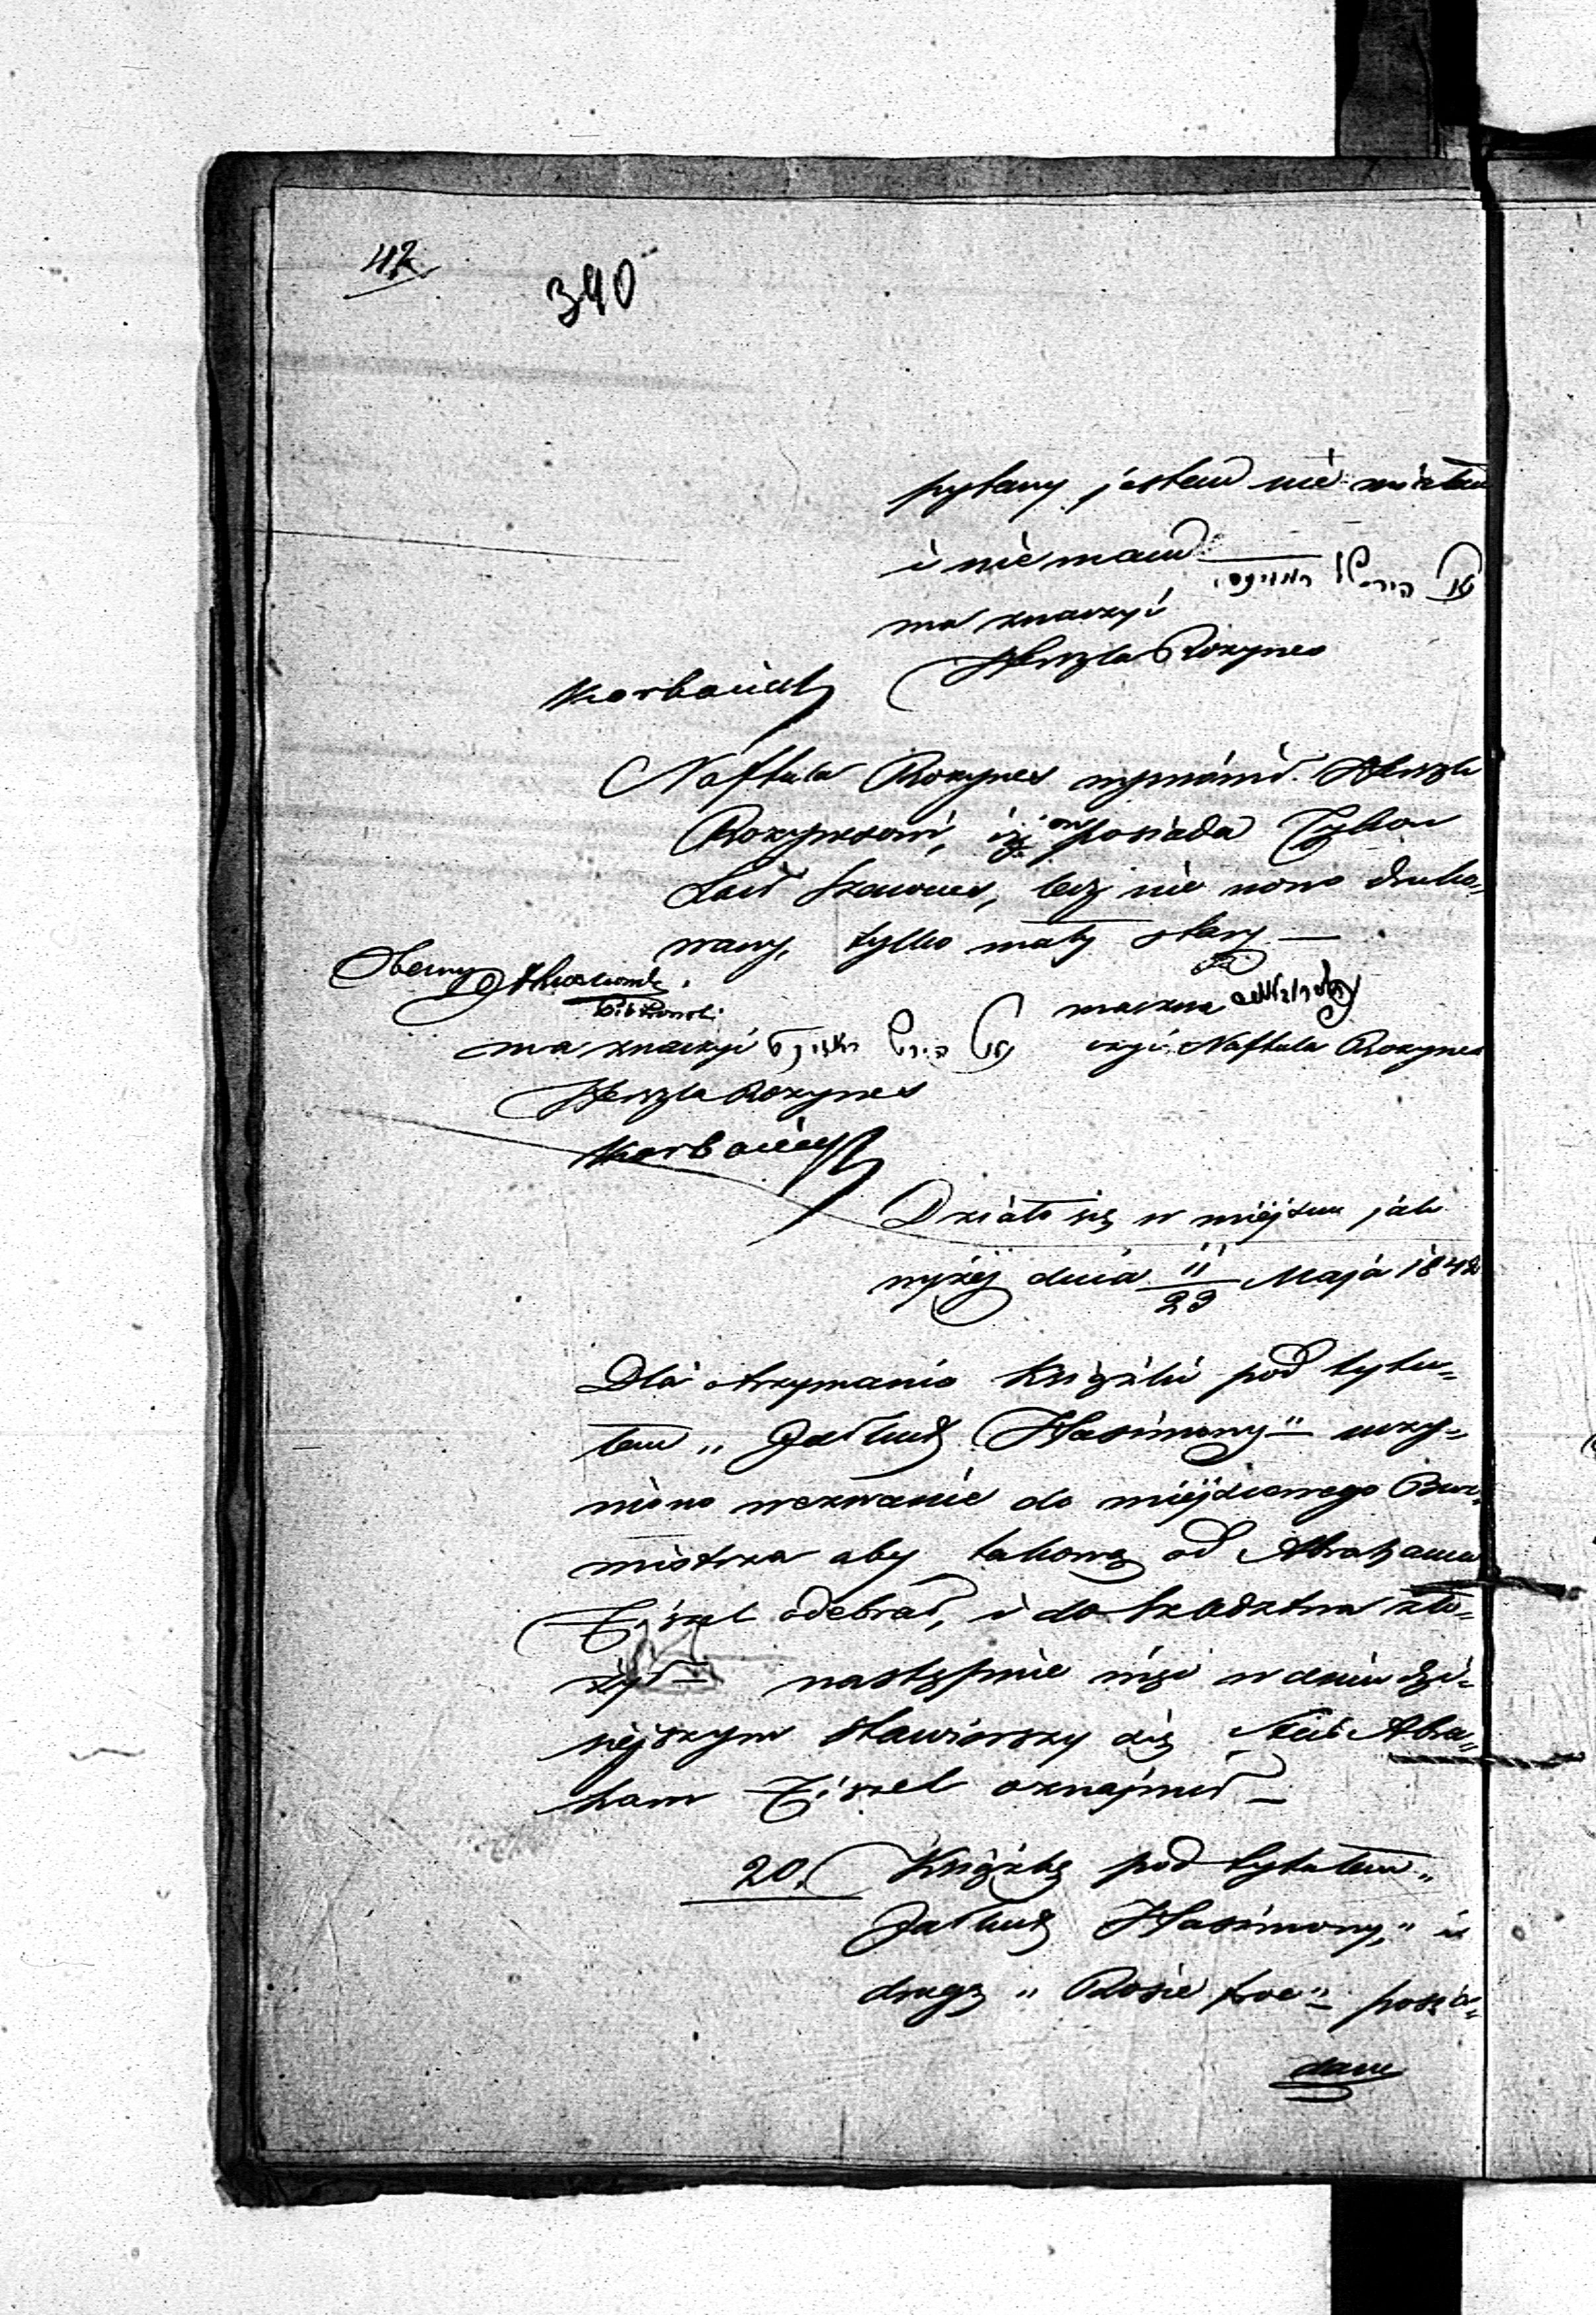 42
340
pytany jestem nie miałem
i nie mam הירש
ma znaczyć
Herszla Rozynes
Karbaniak
Naftula Rozynes wymówił Herszla
Rozynesowi, iż on posiada Tykon
Laił Szawues, lecz nie nowo druko„
wany, tylko mały stary —
Obecny
ma znaczyć הירש maczna
czyi Naftula Rozynes
Herszla Rozynes
Karbaniak
Działo się w miejscu jak
wyżéj dnia 11/23 Maja 1842
Dla otrzymania Książki pod tytu„
łem „Jałkut Hasimony” — uczy„
niono wezwanie do miejscowego Bur„
mistrza aby takową od Abrahama
Ziszel odebrał, i do śledztwa zło„
żył — następnie więc w dniu dzi„
siejszym stawiwszy się Abra„
ham Ziszel oznajmił —
20. Książkę pod tytułem „
Jałkut Hasimony,” i
drugą „Rosie” posia„
dane